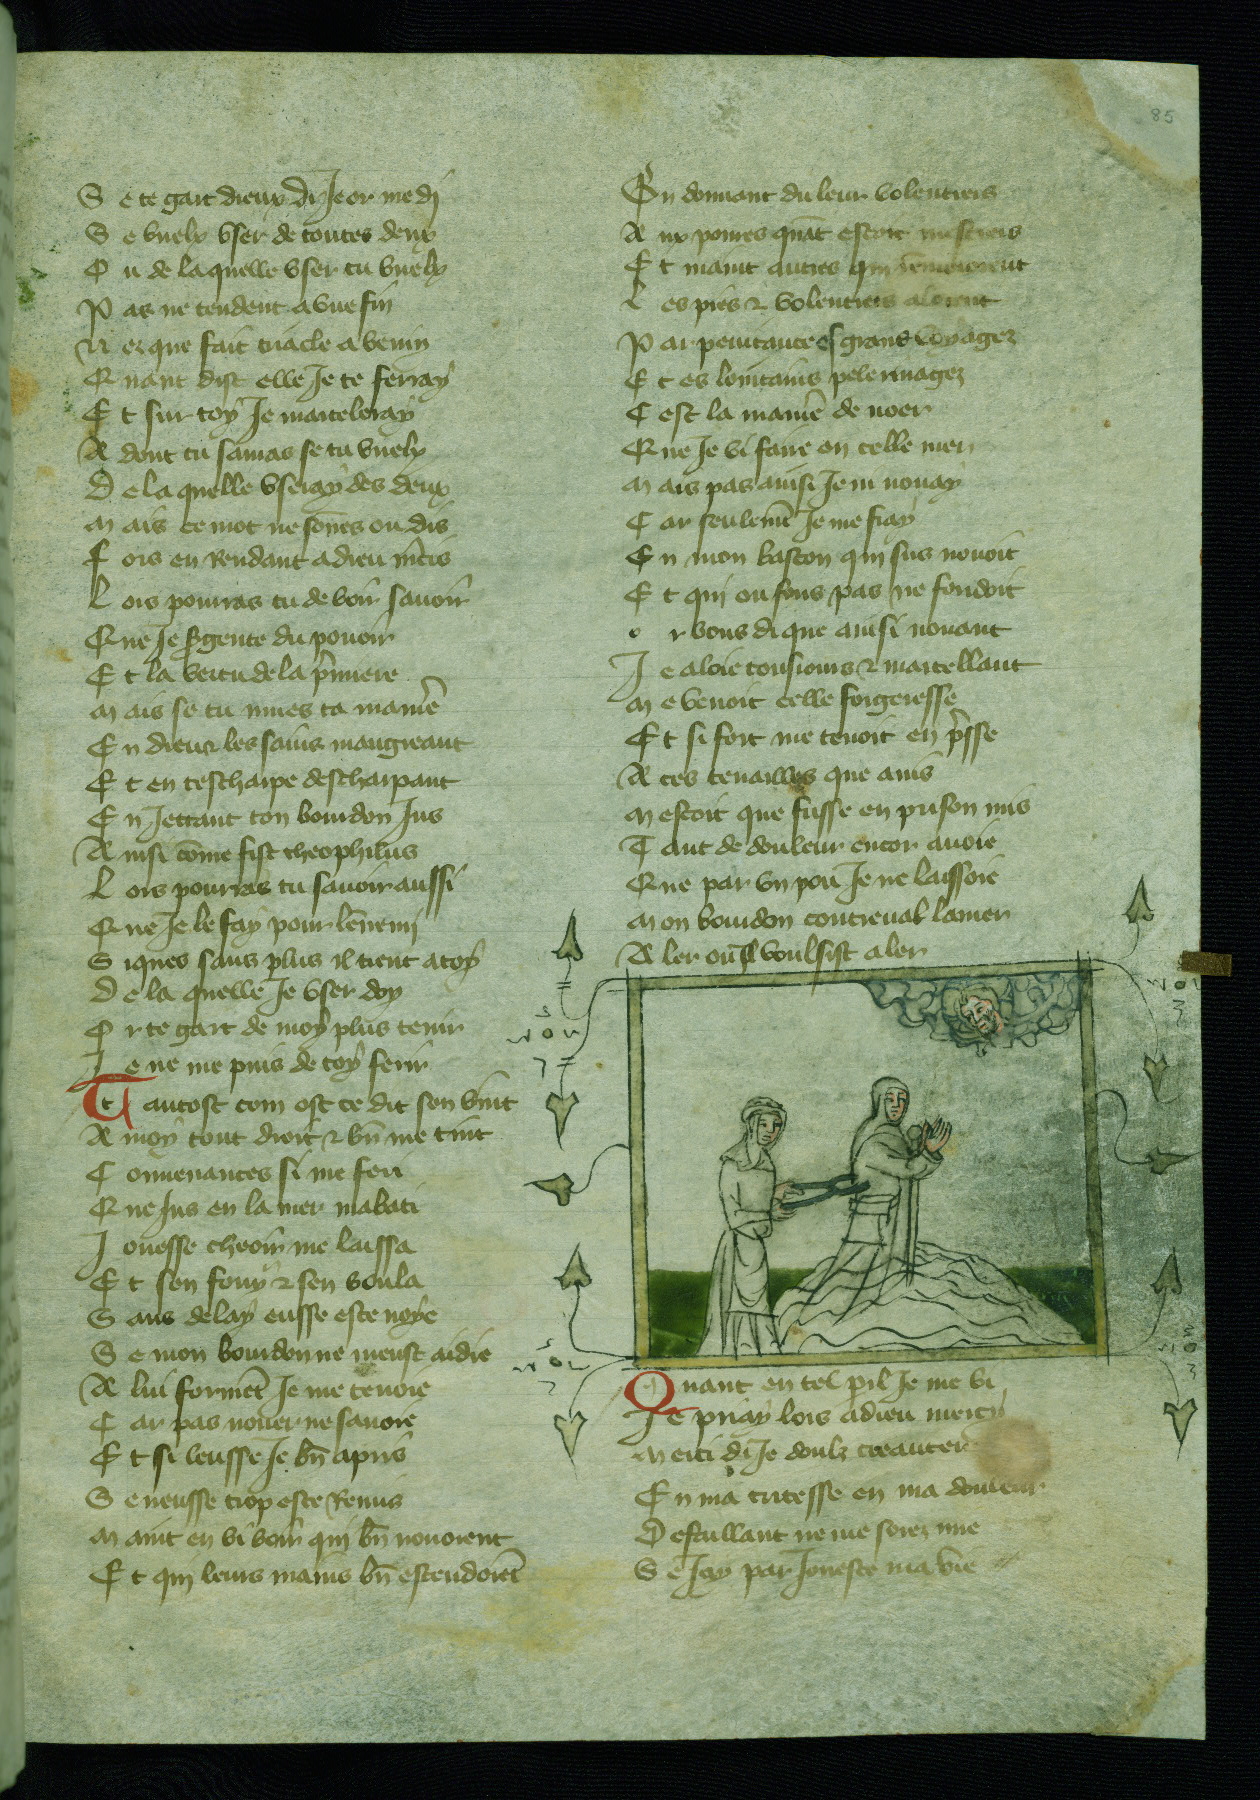 85
S e te gart dieux di Je or me di
S e vuelx vser de toutes deux
O u de laquelle vser tu vuelx
P as ne tendent a vne fin
N es que fait triacle a venin
Q uant dist elle Je te ferray
E t sur toy Je marteleray
A dont tu sarnas se tu vuelx
D e la quelle vseray des deux
M ais ce mot ne sones ou dis
F ors en Rendant a dieu mcis
L ors pourras tu de voir sauoir
Q ue Je Sgente du pouoir
E t la vertu de la pmiere
M ais se tu mues ta manie
E n dieu z les sains maugreant
E t en tescharpe descharpant
E n Jettant ton bourdon Jus
A insi come fist theophilus
L ors pourras tu sauoir aussi
Q ue Je le fay pour lenemi
S iques sans plus il tient a toy
D e la quelle Je vser doy
O r te gart de moy plus tenir
J e ne me puis de toy ferir
T antost com ost ce dit sen vint
A moy tout droit z bn me tint
C onuenances si me feri
Q ue Jus en la mer mabati
J ouesse cheoir me laissa
E t sen fouy z sen voula
S ans delay eusse este noye
S e mon bourdon ne meust aidie
A lui forment Je me tenoie
C ar pas nouer ne sauoie
E t si leusse Je bn apris
S e neusse trop este Remis
M aint en vi voir qui bn nouoient
E t qui leurs mains bn estendoiet
E n donnant du leur volentiers
A ux poures quat estoit mestiers
E t maint autres qui remuoient
L es pies z volentiers aloient
P ar penitance es grans voyagez
E t es lointains pelerinagez
C est la manie de noer
Q ue Je vi faire en celle mer
M ais pas ainsi Je ni nouay
C ar seulemet Je me fiay
E n mon baston qui sus nouoit
E t qui ou fons pas ne fondoit
o r vous di que ainsi nouant
J e aloie tousiours z martellant
M e venoit celle forgeresse
E t si fort me tenoit en psse
A ces tenailles que auis
M estoit que fusse en prison mis
T ant de douleur encor auoie
Q ue par vn pou Je ne laissoie
M on bourdon contreual lamer
A ler ou il voulsist aler
Q uant en tel pil Je me vi
J e priay lors a dieu mercy
M erci di Je doulz creanteur
E n ma tritesse en ma douleur
D efaillant ne me soiez mie
S e Jay par Jouesce ma vie